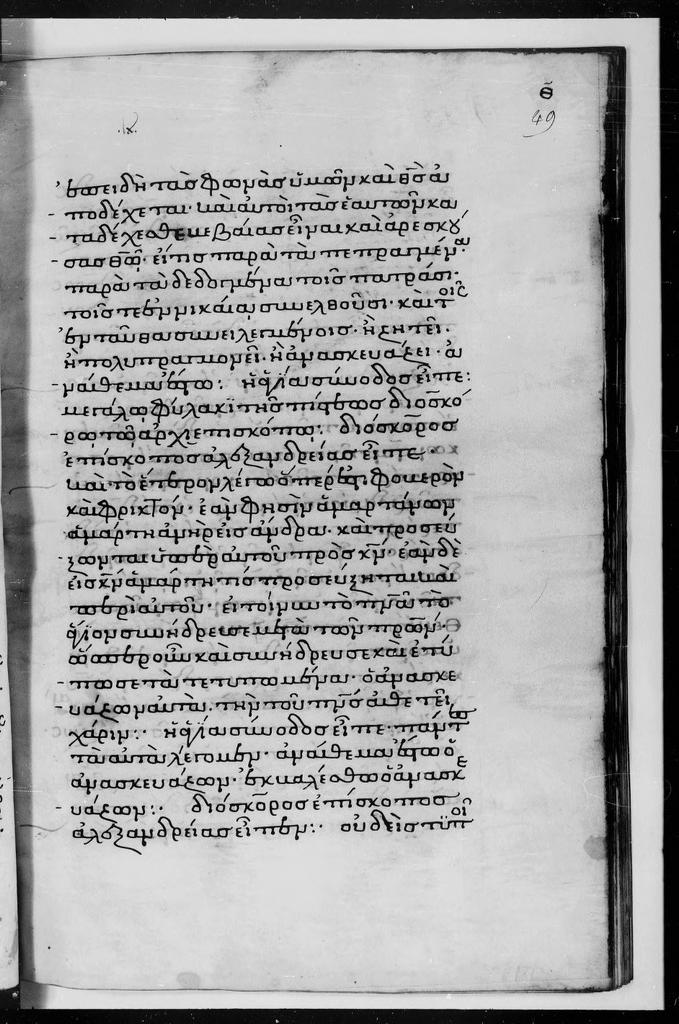 θ
49
ἐπειδὴ τὰς φωνὰς ὑμῶν καὶ θς ἀ
ποδέχεται· καὶ αὐτοὶ τὰς ἑαυτῶν κα
ταδέχεσθε βεβαίας εἶναι καὶ ἀρεσκού
σας θῶ· εἴ τις παρὰ τὰ πεπραγμένα
παρὰ τὰ δεδογμένα τοῖς πατράσι·
τοῖς τε ἐν νικαία συνελθοῦσι· καὶ τοῖς
ἐνταῦθα συνειλεγμένοις· ἢ ζητεῖ·
ἢ πολυπραγμονεῖ· ἢ ἀνασκευάζει· ἀ
νάθεμα ἔστω: ἡ ἁγία σύνοδος εἶπε:
μεγάλω φύλακι τῆς πίστεως διοσκό
ρω τῶ ἀρχιεπισκόπω: διόσκορος
ἐπίσκοπος ἀλεξανδρείας εἶπε·
καὶ τὸ ἕτερον λέγω ὅπερ ἐστὶ φοβερὸν
καὶ φρικτόν· ἐάν φησιν ἁμαρτάνων
ἁμάρτη ἀνὴρ εἰς ἄνδρα· καὶ προσεύ
ξωνται ὑπὲρ αὐτοῦ πρὸς κν· ἐὰν δὲ
εἰς κν ἁμάρτη τίς προσεύξηται καὶ
περὶ αὐτοῦ· εἰ τοίνυν τὸ πνα τὸ
ἅγιον συνήδρευσε μετὰ τῶν πρων·
ὥσπερ οὖν καὶ συνήδρευσε καὶ ἐτύ
πωσε τὰ τετυπωμένα· ὁ ἀνασκε
υάζων αὐτὰ· τὴν τοῦ πνς ἀθετεῖ
χάριν: ἡ ἁγία σύνοδος εἶπε· πάντες
τὰ αὐτὰ λέγομεν· ἀνάθεμα ἔστω ὁ
ἀνασκευάζων· ἐκβαλέσθω ὁ ἀνασκε
υάζων: διόσκορος ἐπίσκοπος
ἀλεξανδρείας εἶπεν: οὐδεὶς τυποῖ